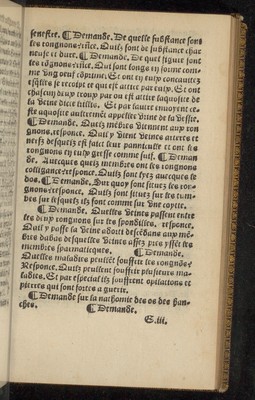 senestre. ¶ Demande. De quelle substance sont
les rongnons. Rñce. Quilz sont de substance char
neuse et dure. ¶ Demande. De quel figure sont
les rongnons. rñce. Qui sont longs en forme com
me ung oeuf cõprime. Et ont en eulx concauitez
esquelz se recoipt et qui est attire par eulx. Et ont
chascun deux troup par ou est attire laquosite de
la veine dicte killis. Et par lautre enuoyent ce
ste aquosite aultrement appellee vrine de la vessie.
¶ Demande. Quelz mēbres viennent aux ron
gnons. response. Quil y vient veines arteres et
nerfz desquelz est faict leur pannicule et ont les
rongnons en eulx gresse comme suif. ¶ Deman
de. Auecques quelz membres ont les rongnons
colligance. response. Quilz sont lyez auecques le
dos. ¶ Demande. Sur quoy sont situez les ron
gnons. response. Quilz sont situez sur les lum
bes sur lesquelz ilz sont comme sur vne coytte.
¶ Demande. Quelles veines passent entre
les deux rongnons sur les spondilles. response.
Quil y passe la veine adorti descēdans aux mē
bres dabas desquelles veines assez pres yssēt les
membres spermatiques. ¶ Demande.
Quelles maladies peullēt souffrir les rongnõs
Response. Quilz peullent souffrir plusieurs ma
ladies. Et par especial ilz souffrent opilations et
pierres qui sont fortes a guerir.
¶ Demande sur la nathomie des os des han
ches. ¶ Demande.
E.iii.